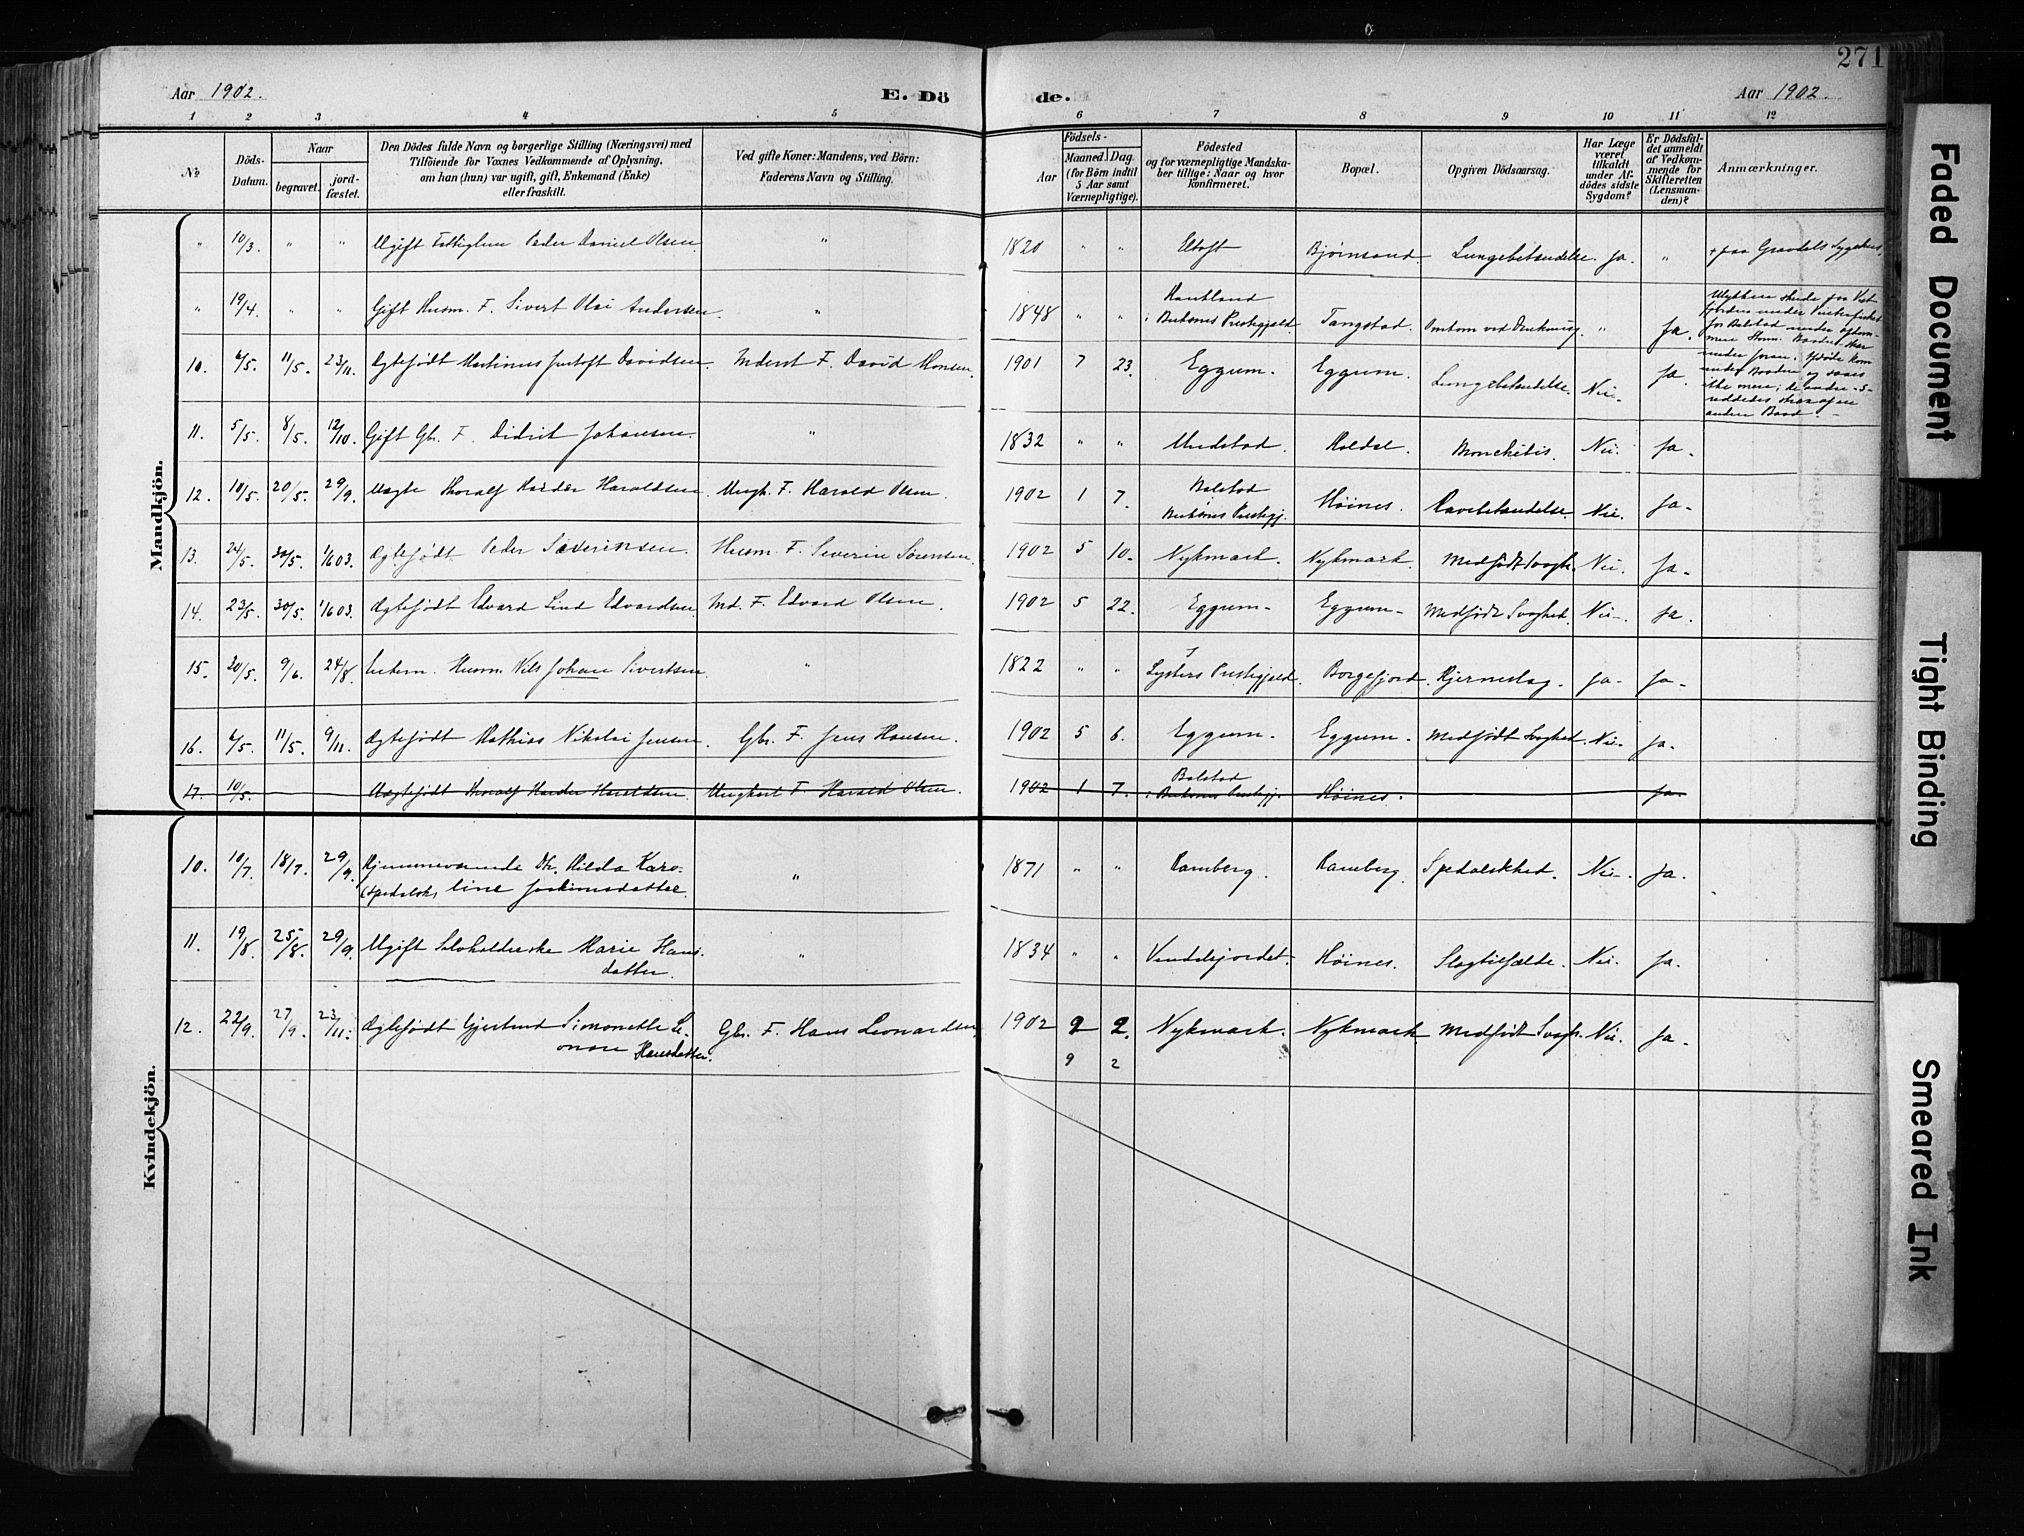 271
Aar 1902.
E. Dö
de.
Aar 1902.
1 2 3 4 5 6 7 8 9 10 11 12
No
Döds-
Datum.
Naar
begravet.
jord-
fæstet.
Den Dödes fulde Navn og borgerlige Stilling (Næringsvei) med
Tilföiende for Voxnes Vedkommende af Oplysning,
om han (hun) var ugift, gift, Enkemand (Enke)
eller fraskilt.
Ved gifte Koner: Mandens, ved Börn:
Faderens Navn og Stilling.
Födsels-
Aar
Maaned. Dag.
(for Börn indtil
5 Aar samt
Værnepligtige).
Födested
og for værnepligtige Mandska-
ber tillige: Naar og hvor
konfirmeret.
Bopæl.
Opgiven Dödsaarsag.
Har Læge
været
tilkaldt
under Af-
dödes sidste
Sygdom?
Er Dödsfil-
det anmeldt
af Vedkom-
mende for
Skifteretten
(Lensman-
den)?
Anmærkninger.
Mandkjön.
" 10/3. " " Ugift Fattiglem Peder Daniel Olsen " 1820 " " Eltoft Bjørnsand. Lungebetændelse. Ja. " + paa Gravdals Sygehus.
" 19/4. " " Gift Husm. F. Sivert Olai Andersen. " 1848 " " i Buksnes Prestegjeld. Tangstad. Omkom ved Drukning. " Ja.
10. 6/5. 11/5. 23/11. Ægtefødt Martinus Justoft Davidsen Inderst F. David Hansen. 1901 7 23. Eggum. Eggum. Lungebetændelse. Nei. Ja.
11. 5/5. 8/5. 12/10. Gift Gbr. F. Didrik Johansen. " 1832 " " Unstad. Holdal. Bronchitis. Nei. Ja.
12. 10/5. 20/5. 29/9. Uægte Thoralf Harder Haraldsen. Ungk. F. Harald Olsen. 1902 1 7. Balstad
Buksnes Prestegj. Høines. Nei. Ja.
13. 24/5. 30/5. 1/6 03. Ægtefødt Peder Severinsen. Husm. F. Severin Sørensen 1902 5 10. Nykmark. Nykmark. Medfødt Svagh. Nei. Ja.
14. 23/5. 30/5. 1/6 03. Ægtefødt Edvard Lind Edvardsen Ind. F. Edvard Olsen. 1902 5 22. Eggum. Eggum. Medfødt Svaghed. Nei. Ja.
15. 30/5. 9/6. 24/8. Enkem. Husm. Nils Johan Sivertsen " 1822 " " Lysters Prestegjeld. Borgefjord. Hjerneslag. Ja. Ja.
16. 6/5. 11/5. 9/11. Ægtefødt Mathias Nikolai Jensen. Gbr. F. Jens Hansen. 1902 5 6. Eggum. Eggum. Medfødt Svaghed. Nei. Ja.
17. 10/5. Uægtefødt Thoralf Harder Haraldsen. Ungkarl F. Harald Olsen. 1902 1 7. Balstad
i Buksnes Prestegj. Høines. Ja.
Kvindekjön.
10. 10/7. 18/7. 29/9. Hjemmeværende Dtr. Hilda Karo-
(spedalsk) line Joakimsdatter. " 1871 " " Ramberg. Ramberg. Spedalskhed. Nei. Ja.
11. 19/8. 25/8. 29/9. Ugift Selvholderske Marie Hans-
datter. " 1834 " " Vendelsjordet. Høines. Slagtilfælde. Nei. Ja.
12. 22/9. 27/9. 23/11. Ægtefødt Gjertrud Simonette Le-
onore Hansdatter. Gbr. F. Hans Leonardsen 1902 9 2. Nykmark. Nykmark Medfødt Svagh. Nei. Ja.
9 2
Faded Document
Tight Binding
Smeared Ink